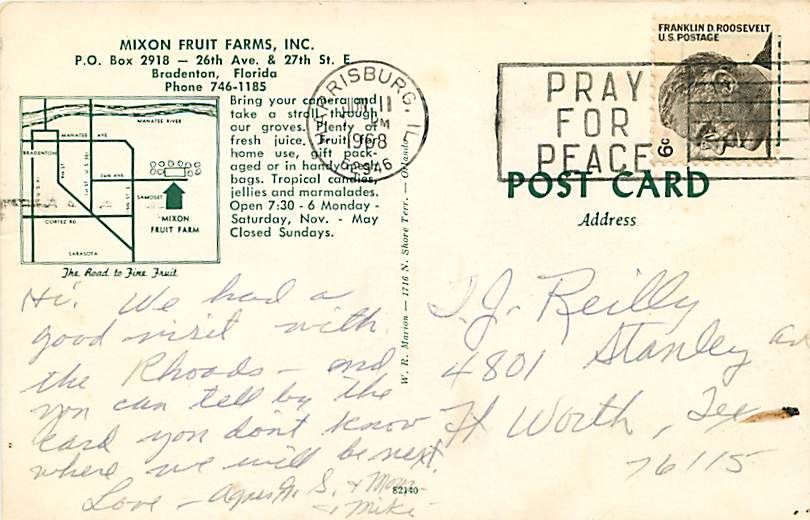 MIXON FRUIT FARMS, INC.
P.O. Box 2918 — 26th Ave. & 27th St. E.
Bradenton, Florida
Phone 746-1185
Bring your camera and
take a stroll through
our groves. Plenty of
fresh juice. Fruit for
home use, gift pack-
aged or in handy mesh
bags. Tropical candies,
jellies and marmalades.
Open 7:30 - 6 Monday -
Saturday, Nov. - May
Closed Sundays.
MANATEE RIVER
MANATEE AVE
BRADENTON
26th AVE
SAMOSET
MIXON
FRUIT FARM
CORTEZ RD.
SARASOTA
The Road to Fine Fruit
HARRISBURG, IL
JUN 11
PM
1968
62946
PRAY
FOR
PEACE
FRANKLIN D. ROOSEVELT
U.S. POSTAGE
6c
POST CARD
Address
W. R. Marion — 1716 N. Shore Terr. — Orlando
Hi. We had a
good visit with
the Rhoads – and
you can tell by the
card you don't know
where we will be next
Love – Agnes S. & Mom
& Mike
T.J. Reilly
4801 Stanley
Ft Worth, Tex
76115
82140